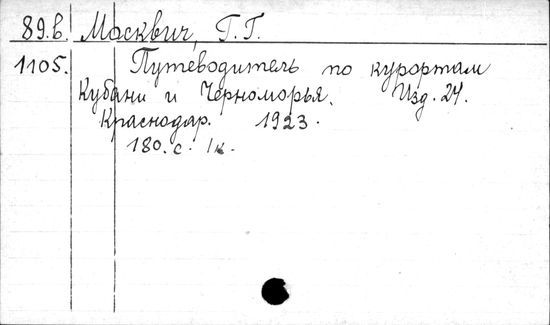 89.в. Москвич, Г.Г.
1105. Путеводитель по курортам
Кубани и Черноморья. Изд. 24.
Краснодар. 1923.
180. с. 1к.